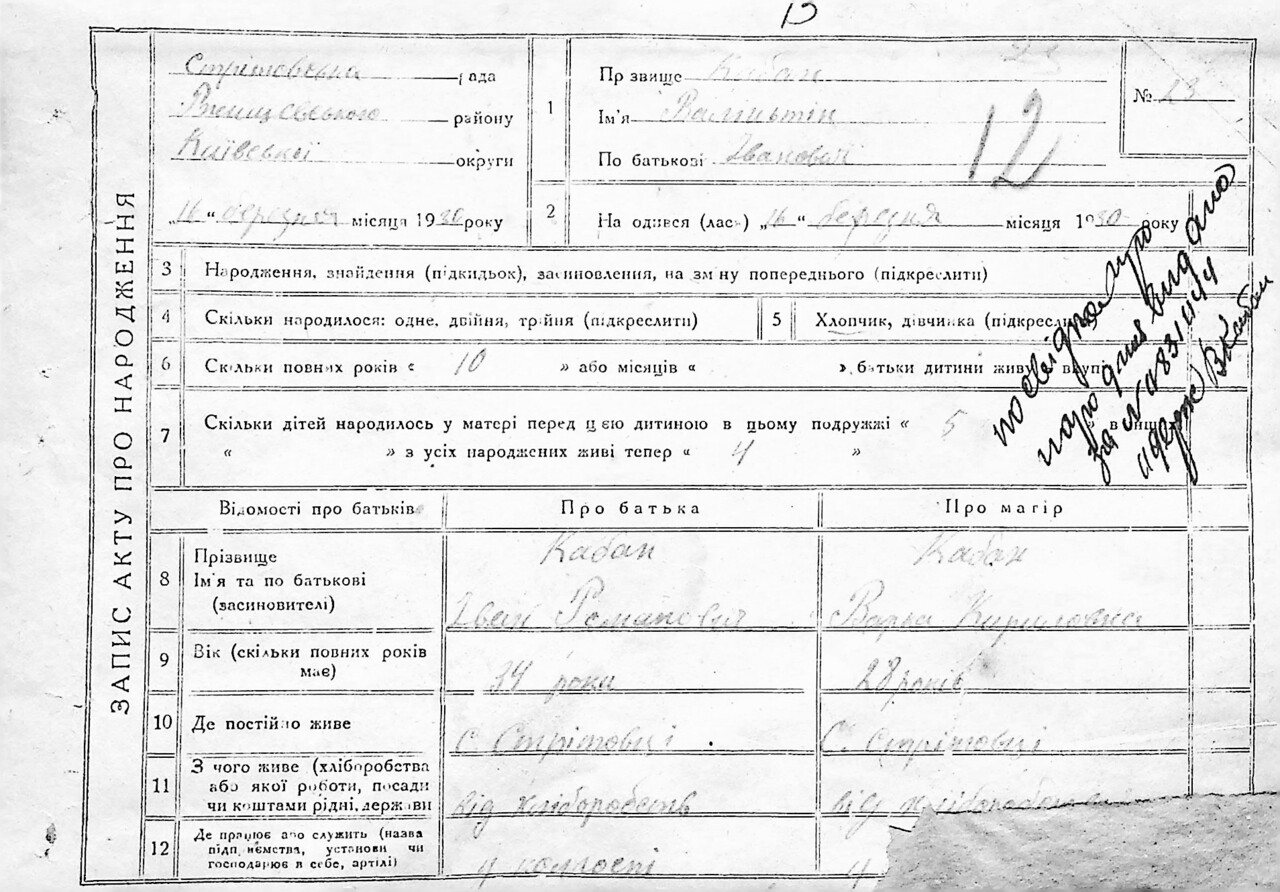 13
Стрітовська рада
Ржищевського району
Київської округи
„16“ березня місяця 1930 року
1
Прзвище Кабан
Ім'я Валинтін
По батькові Іванович
12
№ 23
2
На одився (лась) „16“ березня місяця 1930 року
ЗАПИС АКТУ ПРО НАРОДЖЕННЯ
3 Народження, знайдення (підкидьок), засиновлення, на зміну попереднього (підкреслити)
4 Скільки народилося: одне, двійня, трійня (підкреслити)
5 Хлопчик, дівчинка (підкреслити)
6 Скільки повних років « 10 » або місяців « », батьки дитини живу вкупі
7 Скільки дітей народилось у матері перед цією дитиною в цьому подружжі « 5 » в інших
« » з усіх народжених живі тепер « 4 »
за № 0831144
Відомості про батьків Про батька Про матір
8 Прізвище Кабан Кабан
Ім'я та по батькові
(засиновителі) Іван Романович Варка Кириловна
9 Вік (скільки повних років
має) 34 роки 28 років
10 Де постійно живе С. Стрітовці С. Стрітовці
11 З чого живе (хліборобства
або якої роботи, посади
чи коштами рідні, держави від хліборобств від
12 Де працює або служить (назва
підприємства, установи чи
господарює в себе, артілі) у